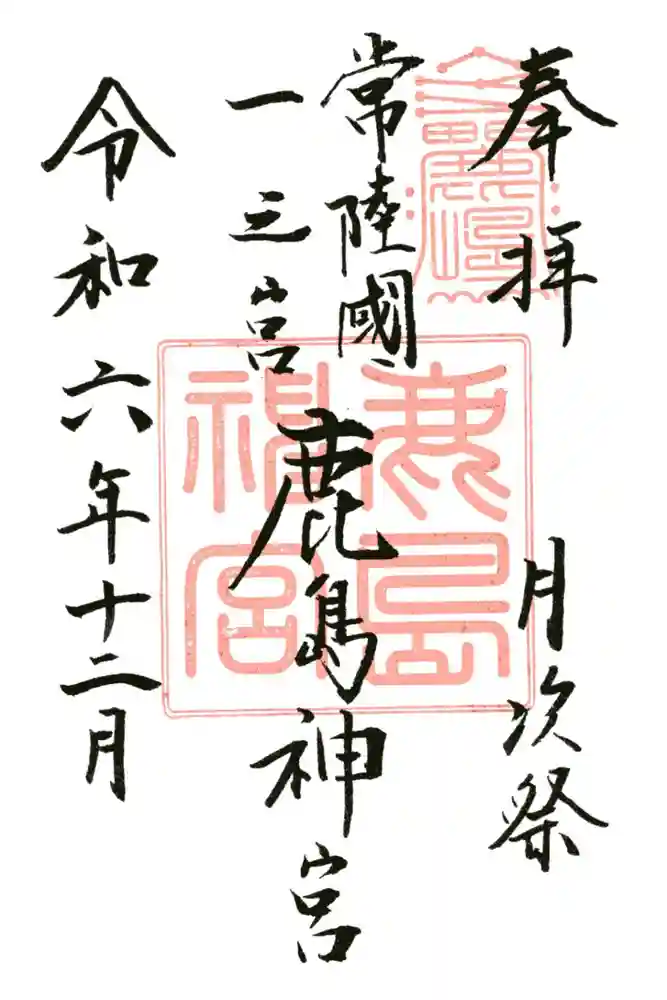 奉拝
月次祭
常陸國
一之宮
鹿島神宮
令和六年十二月
鹿島
神宮